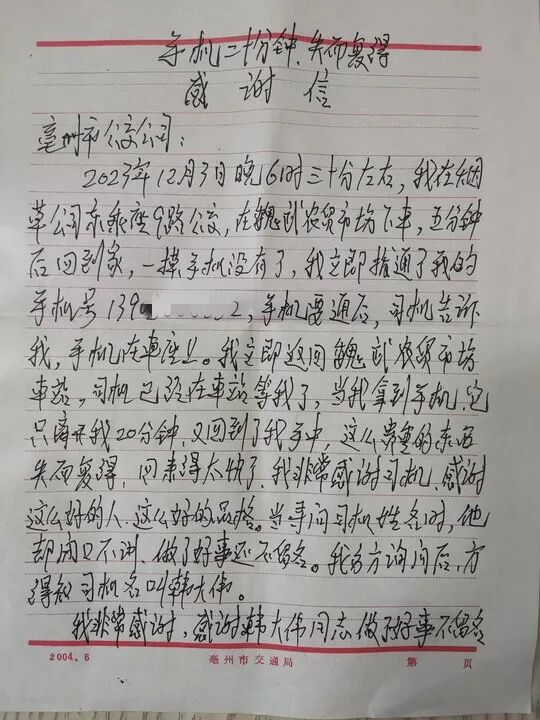 手机二十分钟、失而复得
感谢信
亳州市公交公司：
2023年12月3日晚6时三十分左右，我在烟
草公司东乘座9路公交，在魏武农贸市场下车，五分钟
后回到家，一摸手机没有了，我立即指通了我的
手机号139 2，手机要通后，司机告诉
我，手机在車座上。我立即返回魏武农贸市场
車站，司机已经在車站等我了，当我拿到手机，它
只离开我20分钟，又回到了我手中，这么贵重的东西
失而复得，回来得太快了，我非常感谢司机，感谢
这么好的人、这么好的品格。当事问司机姓名时，他
却闭口不讲、做了好事还不留名。我多方询问后，方
得知司机名叫韩大伟。
我非常感谢，感谢韩大伟同志做了好事不留名
2004、6 亳州市交通局 第 页